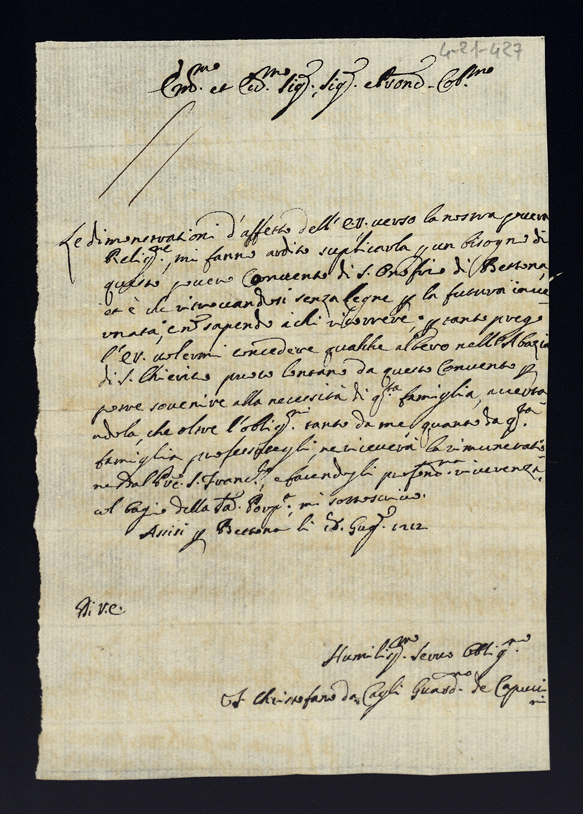 4-21-427
Em.mo et Rd.mo Sig.r, Sig.r et Pron. Col.mo
Le dimonstrationi d'affetto dell'E.V. verso la nostra povera
Relig.ne, mi fanno ardito suplicarla p un bisogno di
questo povero Convento di S. Onofrio di Bettona,
et è che ritrovandosi senza legne p la futura inve
rnata, e nō sapendo a chi ricorrere, p tanto prego
l'E.V. volermi concedere qualche albero nell'Abazia
di S. Chirico poco lontano da questo Convento p
poter sovenire alla necessità di q.ta famiglia, accerta
ndola, che oltre l'oblig.ni tanto da me, quanto da q.ta
famiglia professategli, ne riceverà la rimuneratio
ne dal Pre. S. Franc.o, e facendogli profond.ma riverenza,
col bagio della Porp.a, mi sottoscrivo.
Assisi p Bettona li Giug.o 1712
Di V.E.
Humiliss.mo Servo Oblig.mo
Christofano da Cagli Guard.no de Capucci
ni